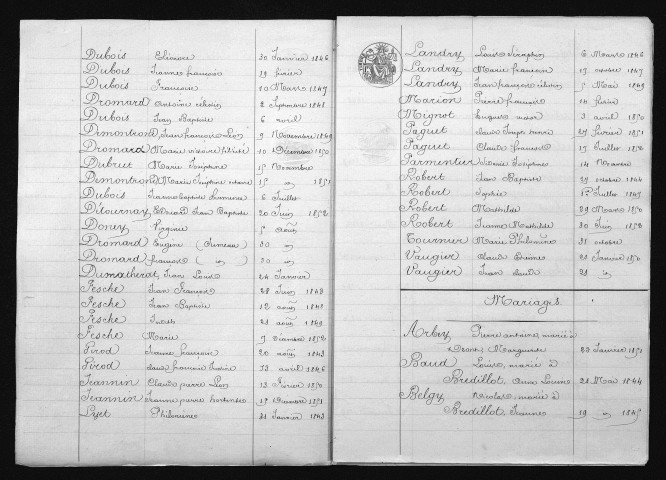 Dubois Eléonore 20 Janvier 1846
Dubois Jeanne françoise 19 février
Dubois Françoise 20 Mars 1847
Dromard Antoine célestin 2 Septembre 1848
Dubois Jean Baptiste 6 avril
Demontrond Jean françois Léon 9 Novembre 1849
Dromard Marie victoire félicité 10 Décembre 1850
Dubret Marie Joséphine 15 Novembre
Demontrond Marie Joséphine 15 1851
Dubois Jeanne Baptiste 6 Juillet
Détournay Edouard Jean Baptiste 20 Juin 1852
Doney Virginie 5 août
Dromard Eugène (Jumeau) 20
Dromard françois 20
Dumatherat Jean Louis 24 Janvier
Fesche Jean François 28 Juin 1843
Fesche Jean Baptiste 12 août 1848
Fesche Judith 23 août 1849
Fesche Marie 9 1852
Pirod Jeanne françoise 20 août 1843
Pirod 13 avril 1846
Jeannin Claude pierre Léon 13 Février 1850
Jeannin Jeanne pierre hortense 17 Décembre 1851
Lyet Philomène 31 Janvier 1843
Landry Louis Séraphin 6 Mars 1846
Landry Marie françoise 27 octobre 1847
Landry Jean françois célestin 5 Mai 1849
Marion Pierre françois 14 février
Mignot 3 avril 1850
Paguet 24 février 1851
Paguet Claude françois 13 Juillet 1850
Parmentier Joséphine 14 Novembre
Robert Jean Baptiste 27 octobre 1844
Robert Sophie Juillet 1847
Robert Mathilde 29 Mars 1850
Robert Jeanne Mathilde 20 Juin 1852
Tournier Marie Philomène 31 octobre
Vaugier Claude 20 Janvier 1850
Vaugier Jean claude 21
Mariages
Arbey Pierre antoine, marié à
Marguerite 23 Janvier 1851
Baud Louis, marié à
Bredillot, Anne Louise 21 Mai 1844
Belgy Nicolas, marié à
Bredillot, Jeanne 19 1845